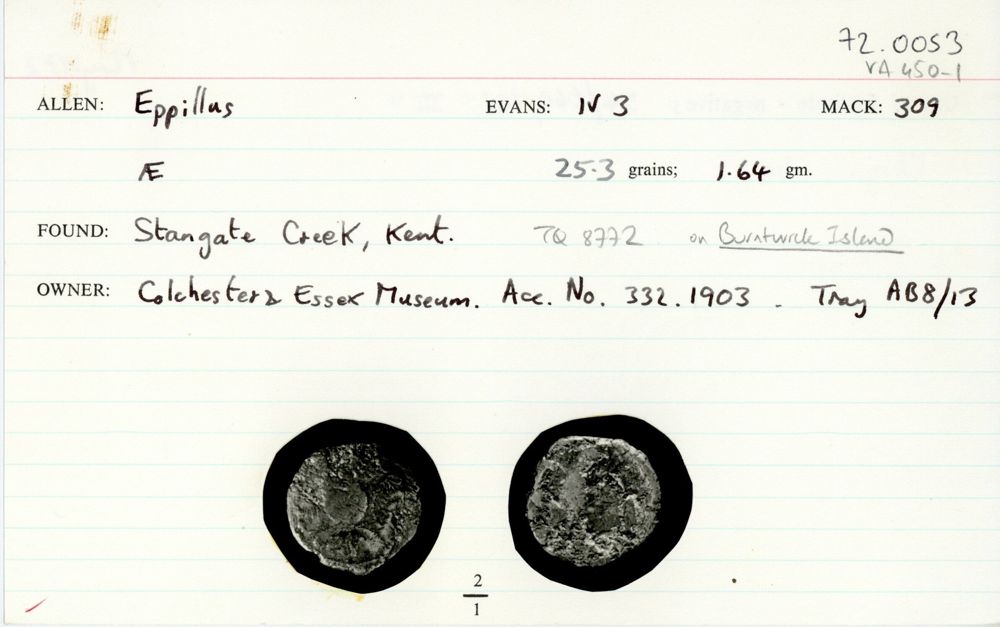 72.0053
VA 450-1
ALLEN: Eppillus EVANS: IV 3 MACK: 309
Æ 25.3 grains; 1.64 gm.
FOUND: Stangate Creek, Kent. TQ 8772 on Burntwick Island
OWNER: Colchester & Essex Museum. Acc. No. 332.1903. Tray AB8/13
2
1